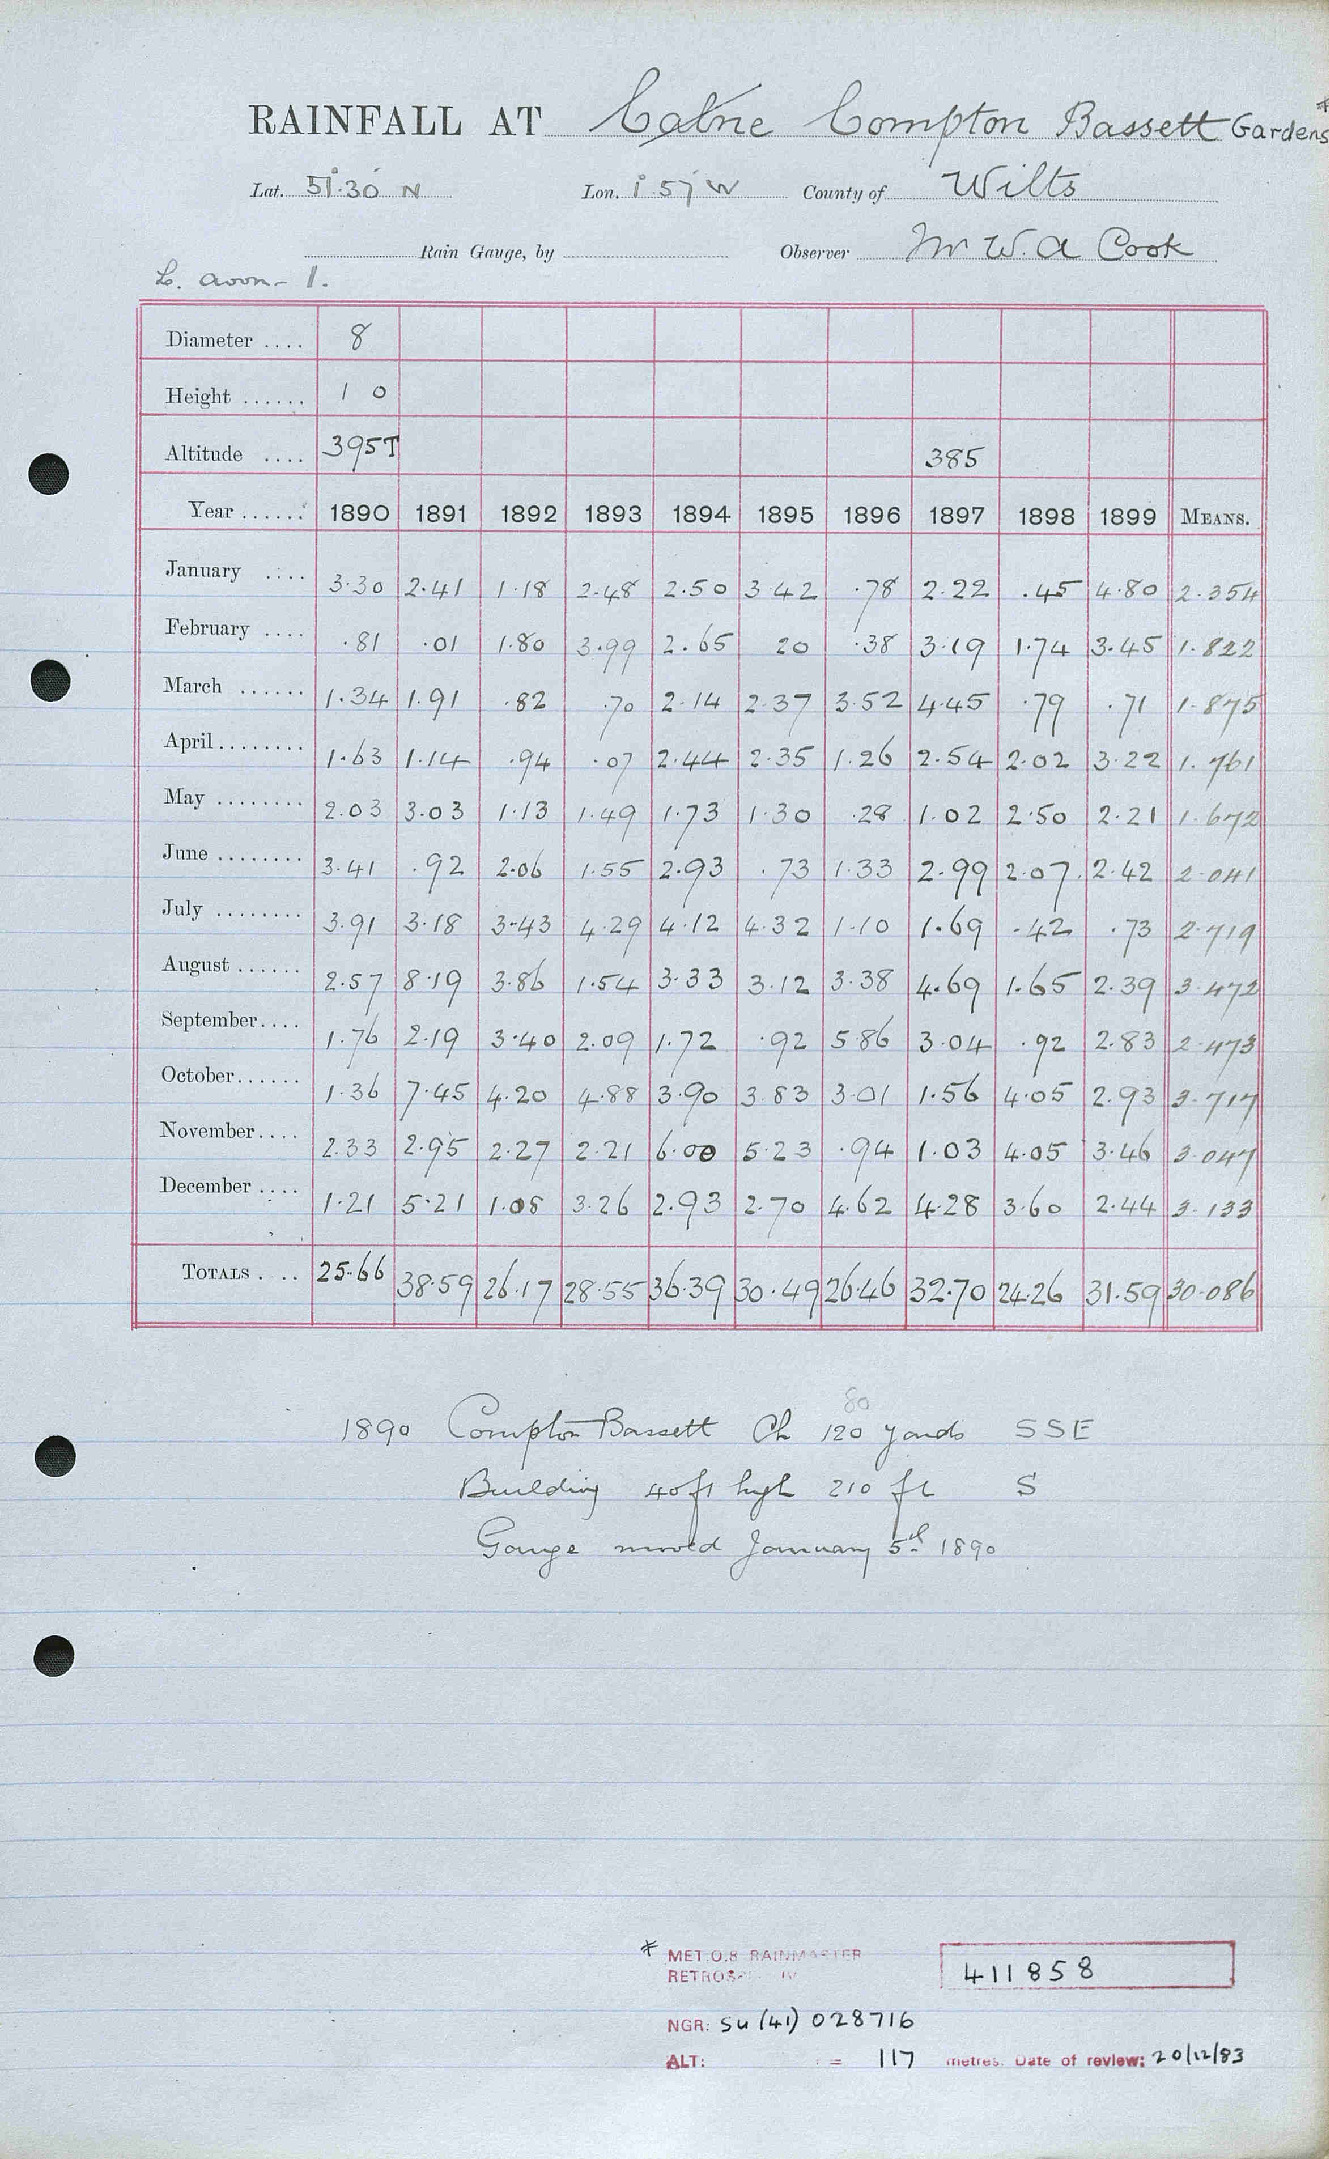 RAINFALL AT Calne Compton Bassett Gardens *
Lat. 51°.30' N Lon. 1°.57' W County of Wilts
Rain Gauge, by Observer Mr W. A Cook
L. Avon - 1.
Diameter .... 8
Height ...... 1 0
Altitude .... 395T 385
Year ...... 1890 1891 1892 1893 1894 1895 1896 1897 1898 1899 MEANS.
January .... 3.30 2.41 1.18 2.48 2.50 3 42 .78 2.22 .45 4.80 2.354
February .... .81 .01 1.80 3.99 2.65 20 .38 3.19 1.74 3.45 1.822
March ...... 1.34 1.91 .82 .70 2.14 2.37 3.52 4.45 .79 .71 1.875
April........ 1.63 1.14 .94 .07 2.44 2.35 1.26 2.54 2.02 3.22 1.761
May ........ 2.03 3.03 1.13 1.49 1.73 1.30 .28 1.02 2.50 2.21 1.672
June ........ 3.41 .92 2.06 1.55 2.93 .73 1.33 2.99 2.07 2.42 2.041
July ........ 3.91 3.18 3.43 4.29 4.12 4.32 1.10 1.69 .42 .73 2.719
August ...... 2.57 8.19 3.86 1.54 3.33 3.12 3.38 4.69 1.65 2.39 3.472
September.... 1.76 2.19 3.40 2.09 1.72 .92 5 86 3.04 .92 2.83 2.473
October...... 1.36 7.45 4.20 4.88 3.90 3.83 3.01 1.56 4.05 2.93 3.717
November.... 2.33 2.95 2.27 2.21 6.00 5.23 .94 1.03 4.05 3.46 3.047
December .... 1.21 5.21 1.08 3.26 2.93 2.70 4.62 4.28 3.60 2.44 3.133
TOTALS . .. 25.66 38.59 26.17 28.55 36.39 30.49 26.46 32.70 24.26 31.59 30.086
80
1890 Compton Bassett Ch 120 yards SSE
Building 40 ft high 210 ft S
Gauge moved January 5th 1890
* MET.O.8 RAINMASTER
411858
NGR: SU (41) 028716
ALT: = 117 metres. Date of review: 20/12/83